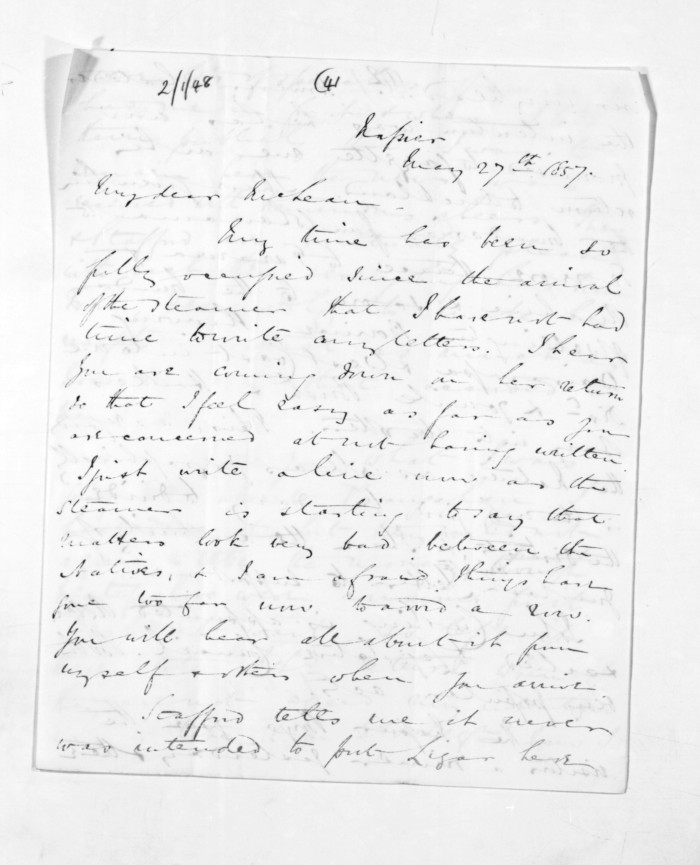 2/1/48 (4)
Napier
May 27th 1857.
My dear McLean.
My time has been so
fully occupied since the arrival
of the steamer that I have not had
time to write any letters. I hear
you are coming down on her return
so that I feel easy as far as you
are concerned at not having written.
I just write a line now as the
steamer is starting to say that
matters look very bad between the
Natives, & I am afraid things have
gone too far now to avoid a row.
You will hear all about it from
myself & others when you arrive.
Stafford tells me it never
was intended to put Ligar here